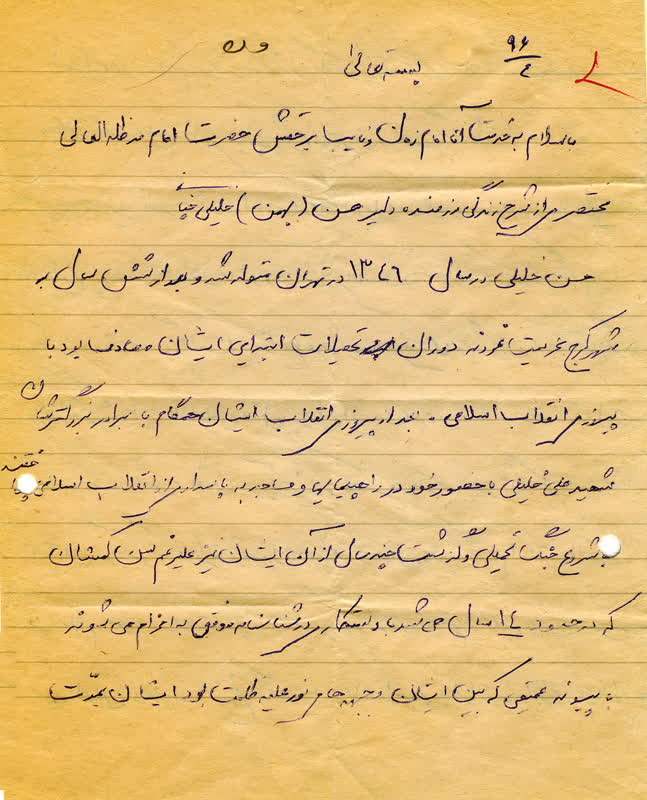 ۹۶
۴
بسمه تعالی
با سلام به خدمت آقا امام زمان و نایب بر حقش حضرت امام مدظله العالی
مختصری از شرح زندگی رزمنده دلیر حسن (بهمن) خلیلی
حسن خلیلی در سال ۱۳۴۶ در تهران متولد شد و بعد از شش سال به
شهر کرج عزیمت نمودند دوران تحصیلات ابتدایی ایشان مصادف بود با
پیروزی انقلاب اسلامی. بعد از پیروزی انقلاب ایشان همگام با برادر بزرگترشان
شهید علی خلیلی با حضور خود در راهپیماییها و مساجد به پاسداری از انقلاب اسلامی پرداختند
با شروع جنگ تحمیلی و گذشت چند سال از آن ایشان نیز علیرغم سن کمشان
که در حدود ۱۴ سال می شد با دستکاری در شناسنامه موفق به اعزام می شوند
با پیوند عمیقی که بین ایشان و جبهه های نور علیه ظلمت بود ایشان بمدت